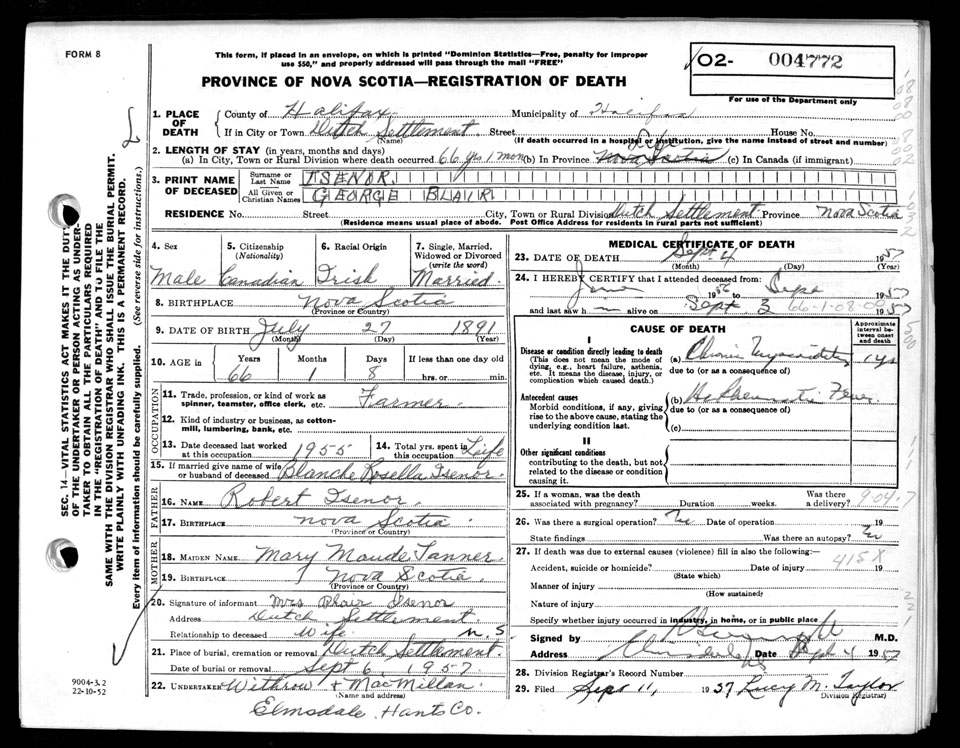 FORM 8
This form, if placed in an envelope, on which is printed "Dominion Statistics—Free, penalty for improper
use $50," and properly addressed will pass through the mail "FREE"
PROVINCE OF NOVA SCOTIA—REGISTRATION OF DEATH
02- 004772
For use of the Department only
SEC. 14—VITAL STATISTICS ACT MAKES IT THE DUTY
OF THE UNDERTAKER OR PERSON ACTING AS UNDER-
TAKER TO OBTAIN ALL THE PARTICULARS REQUIRED
IN THE "REGISTRATION OF DEATH" AND TO FILE THE
SAME WITH THE DIVISION REGISTRAR WHO SHALL ISSUE THE BURIAL PERMIT.
WRITE PLAINLY WITH UNFADING INK. THIS IS A PERMANENT RECORD.
Every item of information should be carefully supplied. (See reverse side for instructions.)
1. PLACE OF DEATH
County of Halifax Municipality of Halifax
If in City or Town Dutch Settlement Street House No.
(Name) (If death occurred in a hospital or institution, give the name instead of street and number)
2. LENGTH OF STAY (in years, months and days)
(a) In City, Town or Rural Division where death occurred 66 yrs 1 mon (b) In Province Nova Scotia (c) In Canada (if immigrant)
3. PRINT NAME OF DECEASED
Surname or Last Name ISENOR
All Given or Christian Names GEORGE BLAIR
RESIDENCE No. Street City, Town or Rural Division Dutch Settlement Province Nova Scotia
(Residence means usual place of abode. Post Office Address for residents in rural parts not sufficient)
4. Sex Male
5. Citizenship (Nationality) Canadian
6. Racial Origin Irish
7. Single, Married, Widowed or Divorced (write the word) Married
8. BIRTHPLACE Nova Scotia
(Province or Country)
9. DATE OF BIRTH July 27 1891
(Month) (Day) (Year)
10. AGE in Years Months Days If less than one day old
66 1 8 hrs. or min.
OCCUPATION
11. Trade, profession, or kind of work as spinner, teamster, office clerk, etc. Farmer
12. Kind of industry or business, as cotton-mill, lumbering, bank, etc.
13. Date deceased last worked at this occupation 1955
14. Total yrs. spent in this occupation Life
15. If married give name of wife or husband of deceased Blanche Rosella Isenor
FATHER
16. NAME Robert Isenor
17. BIRTHPLACE Nova Scotia
(Province or Country)
MOTHER
18. MAIDEN NAME Mary Maude Tanner
19. BIRTHPLACE Nova Scotia
(Province or Country)
20. Signature of informant Mrs Blair Isenor
Address Dutch Settlement
Relationship to deceased Wife N.S
21. Place of burial, cremation or removal Dutch Settlement
Date of burial or removal Sept 6, 1957
22. UNDERTAKER Withrow & MacMillan
(Name and address)
Elmsdale Hants Co.
9004-3.2
22-10-52
MEDICAL CERTIFICATE OF DEATH
23. DATE OF DEATH Sept 4 1957
(Month) (Day) (Year)
24. I HEREBY CERTIFY that I attended deceased from:
1956 to Sept 1957
and last saw h m alive on Sept 3 1957
66-1-08-00
CAUSE OF DEATH
Approximate interval between onset and death
I
Disease or condition directly leading to death
(This does not mean the mode of dying, e.g., heart failure, asthenia, etc. It means the disease, injury, or complication which caused death.)
(a) Chronic Myocarditis 1 yr
due to (or as a consequence of)
Antecedent causes
Morbid conditions, if any, giving rise to the above cause, stating the underlying condition last.
(b) Rheumatic Fever
due to (or as a consequence of)
(c)
II
Other significant conditions
contributing to the death, but not related to the disease or condition causing it.
25. If a woman, was the death associated with pregnancy? Duration weeks. Was there a delivery?
904.7
26. Was there a surgical operation? No Date of operation 19
State findings Was there an autopsy? No
27. If death was due to external causes (violence) fill in also the following:—
415X
Accident, suicide or homicide? Date of injury 19
(State which)
Manner of injury
(How sustained)
Nature of injury
Specify whether injury occurred in industry, in home, or in public place
Signed by M.D.
Address Date Sept 4 1957
28. Division Registrar's Record Number
29. Filed Sept 11, 1957 Lucy M. Taylor
(Division Registrar)